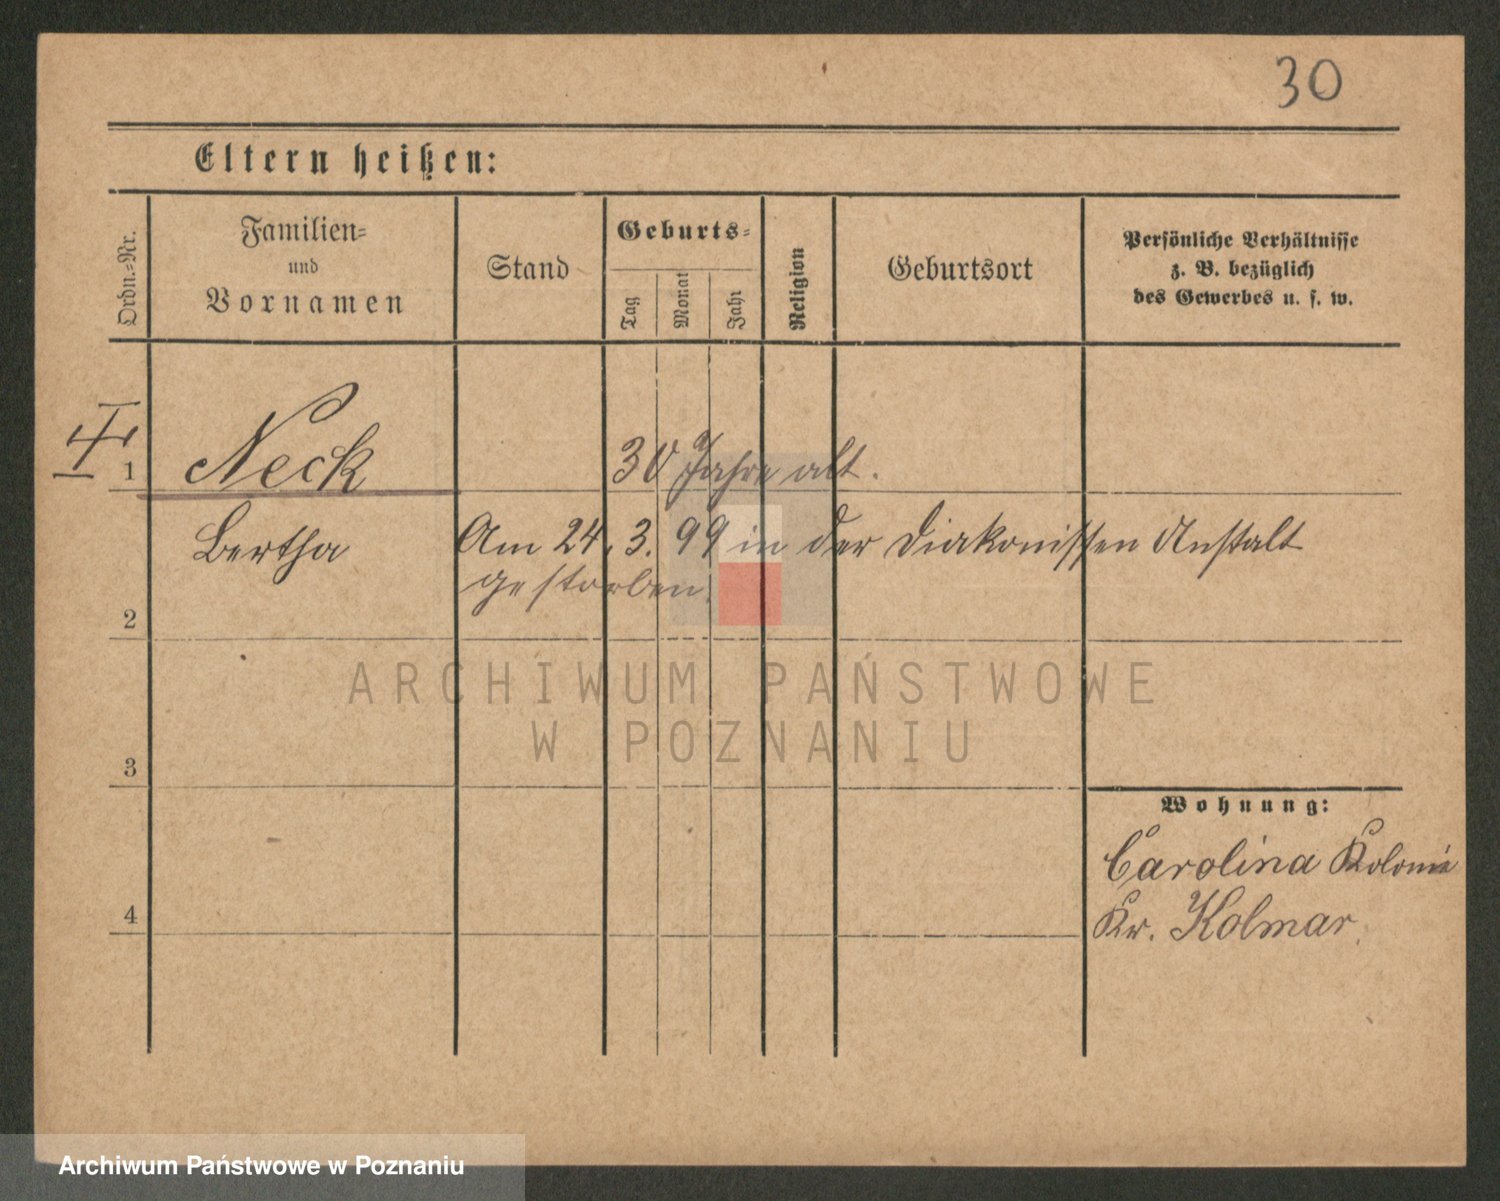 30
Eltern heißen:
Ordn.-Nr.
Familien-
und
Vornamen
Stand
Geburts-
Tag
Monat
Jahr
Religion
Geburtsort
Persönliche Verhältnisse
z. B. bezüglich
des Gewerbes u. s. w.
1
Neck
30 Jahre alt.
Bertha
Am 24. 3. 99 in der Diakonissen Anstalt
gestorben.
2
ARCHIWUM PAŃSTWOWE
W POZNANIU
3
Wohnung:
Carolina Kolonie
4
Kr. Kolmar.
Archiwum Państwowe w Poznaniu